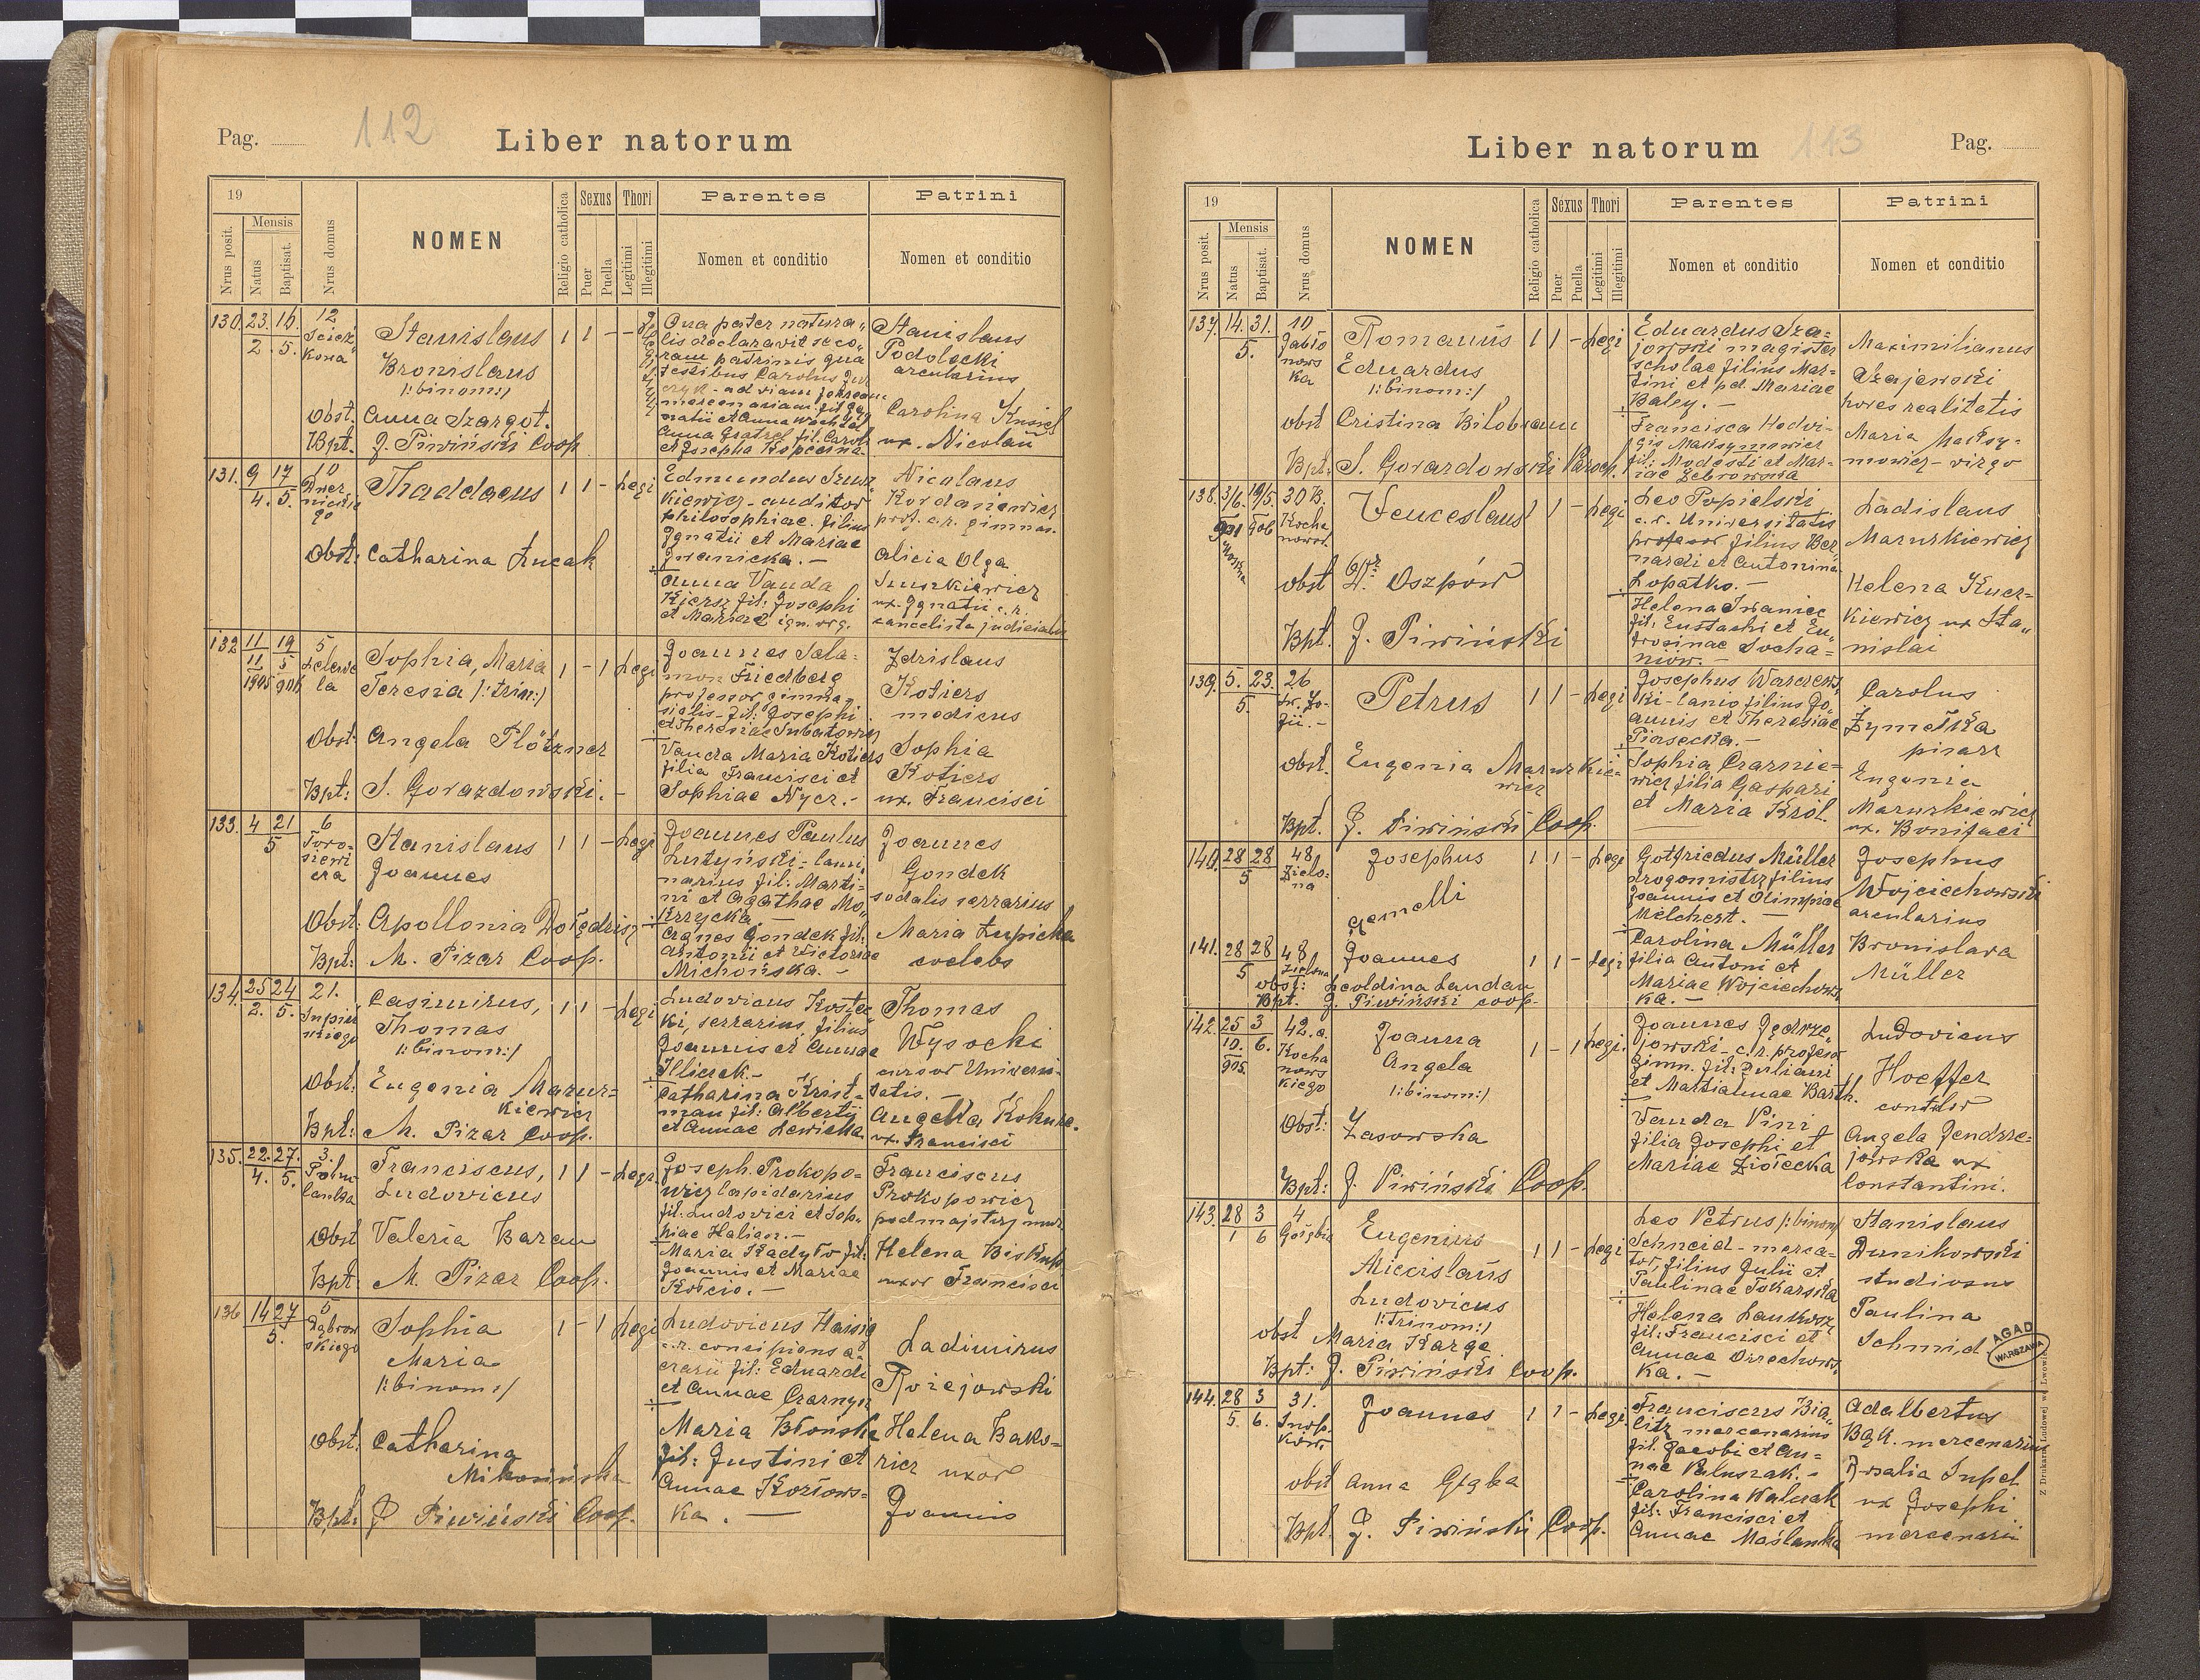 Pag. 112
Liber natorum
19
Nrus posit.
Mensis
Natus
Baptisat.
Nrus domus
NOMEN
Religio catholica
Sexus
Puer
Puella
Thori
Legitimi
Illegitimi
Parentes
Nomen et conditio
Patrini
Nomen et conditio
130. 23. 16. 12
2. 5.
Stanislaus 1 1 - -
Bronislaus
/:binom:/
Obst. Anna Szargot.
Bpt. J. Piwiński Coop
Qua pater natura„
lis declaravit se co„
ram patrinis qua
testibus Carolus
Stanislaus
Podolecki
arcularius
Carolina
ux. Nicolai
131. 9 17 10
4. 5.
Thaddaeus 1 1 - Legi
Obst: Catharina Lucak
Edmundus
kiewicz - auditor
philosophiae filius
Ignatii et Mariae
Iwanicka. -
Anna Vanda
Kiersz fil: Josephi
et Mariae
Nicolaus
Kordasiewicz
prof. c.r. gimnas.
Alicia Olga
ux. Ignatii c.r.
cancelista judicialis
132 11 19 5
11 5
1905 906
Lelewe
la
Sophia, Maria 1 - 1 Legi
Teresia /:trin:/
Obst: Angela Plötzner
Bpt: S. Gorazdowski. -
Joannes Sala=
mon Friedberg
professor gimna„
sialis - fil: Josephi
Vanda Maria Kotiers
filia Francisci et
Sophiae Nycz. -
Zdzislaus
Kotiers
medicus
Sophia
Kotiers
ux. Francisci
133. 4 21 6
5
Toro=
siewi
cza
Stanislaus 1 1 - Legi
Joannes
Obst: Apollonia
Bpt: M. Pizar Coop.
Joannes Paulus
Lutyński - lami„
narius fil: Marti=
ni et Agathae Mo„
krzycka. -
Agnes Gondek fil:
Antonii et Victoriae
Michońska. -
Joannes
Gondek
sodalis serrarius
Maria Łupicka
coelebs
134. 25 24 21.
2. 5.
Casimirus, 1 1 - Legi
Thomas
/:binom:/
Obst: Eugenia Mazur=
kiewicz
Bpt: M. Pizar Coop.
Ludovicus Kostec
ki, serrarius, filius
Joannis et Annae
Illiczek. -
Catharina Krist=
man fil: Alberti
et Annae Lewicka
Thomas
Wysocki
cursor Universi=
tatis. -
Angella
ux. Francisci
135. 22. 27. 3.
4. 5.
Franciscus, 1 1 - Legi
Ludovicus
Obst Valeria Baran
Bpt: M. Pizar Coop.
Joseph. Prokopo=
wicz lapidarius
fil: Ludovici et Sop„
hiae
Maria Kadyło fil:
Joannis et Mariae
Kościo. -
Franciscus
Prokopowicz
podmajstrzy mur
Helena Biskup
uxor Francisci
136 14 27 5
5.
Dąbrow
skiego
Sophia 1 - 1 Legi
Maria
/:binom:/
Obst: Catharina
Bpt: J. Piwiński Coop.
Ludovicus Haisig
c.r. concipiens a„
erarii fil: Eduardi
et Annae
Maria Błońska
fil: Justini et
Annae Kozłows=
ka. -
Ladimirus
Rozejowski
Helena Bako=
ricz uxor
Joannis
Liber natorum
113 Pag.
19
Nrus posit.
Mensis
Natus
Baptisat.
Nrus domus
NOMEN
Religio catholica
Sexus
Puer
Puella
Thori
Legitimi
Illegitimi
Parentes
Nomen et conditio
Patrini
Nomen et conditio
137. 14. 31. 10
5.
Jabło
nows
ka
Romanus 1 1 - Legi
Eduardus
/:binom:/
Obst Cristina Bilobram
Bpt: S. Gorazdowski Paroch.
Eduardus Sza=
jowski magister
scholae filius Mar=
tini et pd. Mariae
Baley. -
Francisca Hedvi=
gis Maksymowicz
fil: Modesti et Mar=
iae Zebrowska
Maximilianus
Szajewski
heres realitatis
Maria Maksy=
mowicz - virgo
138. 3/6. 19/5. 30 B.
901 906
Kocha
nows.
Venceslaus 1 1 - Legi
Obst Dr. Oszpów
Bpt. J. Piwiński
Leo Popielski
c.r. Universitatis
professor filius Ber„
nardi et Antonina
Lopatko. -
Helena Iwaniec
fil. Eustachi et Eu„
frosinae Socha=
niów. -
Ladislaus
Mazurkiewicz
Helena Kucz=
kiewicz ux Sta„
nislai
139. 5. 23. 26
5.
Św. Zo=
fii. -
Petrus 1 1 - Legi
Obst. Eugenia Mazurkie=
wicz
Bpt. J. Piwiński Coop.
Josephus
ki - lanio filius Jo„
annis et Theresiae
Piasecka. -
Sophia Czarnie=
wicz filia Gaspari
et Maria Król.
Carolus
Żymełka
pisarz
Eugenia
Mazurkiewicz
ux. Bonifaci
140. 28 28 48
5
Zielo=
na
Josephus 1 1 - Legi
gemelli
141. 28 28 48
5
Zielona
Joannes 1 1 - Legi
Obst: Leoldina Landau
Bpt. J. Piwiński Coop.
Gotfriedus Müller
drogomistrz filius
Joannis et Olimpiae
Melchert. -
Carolina Müller
filia Antoni et
Mariae Wojciechows
ka. -
Josephus
Wojciechowski
arcularius
Bronislava
Müller
142. 25 3 42. a.
10. 6.
905.
Kocha
nows
kiego
Joanna 1 - 1 Legi.
Angela
/:binom:/
Obst: Zasowska
Bpt: J. Piwiński Coop.
Joannes Jędrze„
jowski - c.r. profesor
gimn. fil: Juliani
et Martialinae Barth.
Vanda Pini
filia Josephi et
Mariae Ziołecka
Ludovicus
Hoeffer
Angela Jendrze=
jowska ux
Constantini.
143. 28 3 4
1 6
Eugenius 1 1 - Legi
Miecislaus
Ludovicus
/:trinom:/
Obst Maria Karge
Bpt: J. Piwiński Coop.
Leo Petrus /:binom/
Schneid - merca=
tor, filius Julii et
Paulinae Tokarska
Helena Lankosz
fil: Francisci et
Annae Orzechows„
ka. -
Stanislaus
Dunikowski
studiosus
Paulina
Schmid
AGAD
WARSZAWA
144. 28 3 31.
5. 6.
Joannes 1 1 - Legi
Obst Anna
Bpt. J. Piwiński Coop.
Franciscus Bia„
mercenarius
fil. Jacobi et An=
nae Paluszak. -
Carolina Walczak
fil: Francisci et
Annae Maślanka
Adalbertus
Bąk. mercenarius
Rosalia
ux Josephi
mercenarii
Z Drukarni Ludowej we Lwowie.